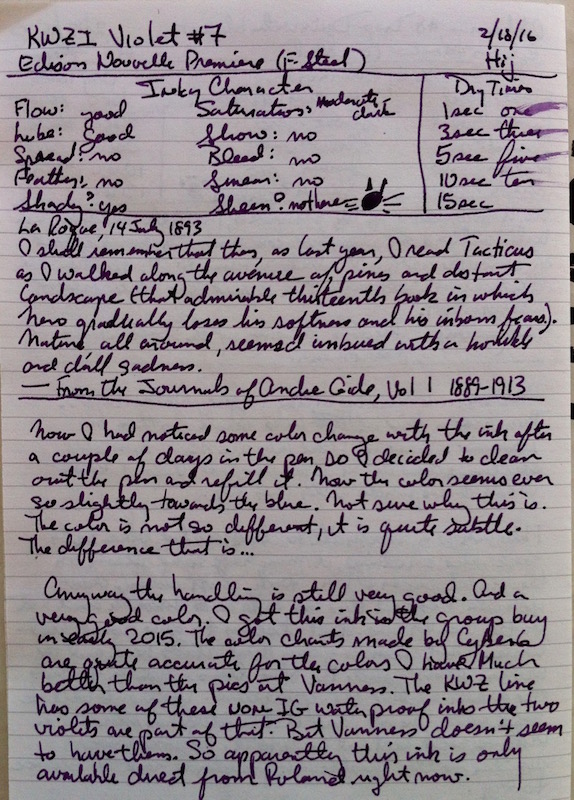 KWZI Violet #7
2/18/16
Edison Nouvelle Premiere (F-Steel)
Hij
Inky Character
Dry Times
Flow: good
Saturation: Moderate dark
1sec one
Lube: Good
Show: no
3sec three
Spread: no
Bleed: no
5sec five
Feather: no
Smear: no
10sec ten
Shady? yes
Sheen? not here
15sec
La Roque, 14 July 1893
I shall remember that then, as last year, I read Tacitus
as I walked along the avenue of pines and distant
landscape (that admirable thirteenth book in which
Nero gradually loses his softness and his inborn fears).
Nature all around, seemed imbued with a
and dull sadness.
— From the Journals of Andre Gide, Vol 1 1889-1913
Now I had noticed some color change with the ink after
a couple of days in the pen so I decided to clean
out the pen and refill it. Now the color seems ever
so slightly towards the blue. Not sure why this is.
The color is not so different, it is quite subtle.
The difference that is...
Anyway the handling is still very good. And a
very good color. I got this ink in the group buy
in early 2015. The color charts made by
are quite accurate for the colors I have. Much
better than the pics at Vanness. The KWZ line
has some of these non IG waterproof inks the two
violets are part of that. But Vanness doesn't seem
to have them. So apparently this ink is only
available direct from Poland right now.